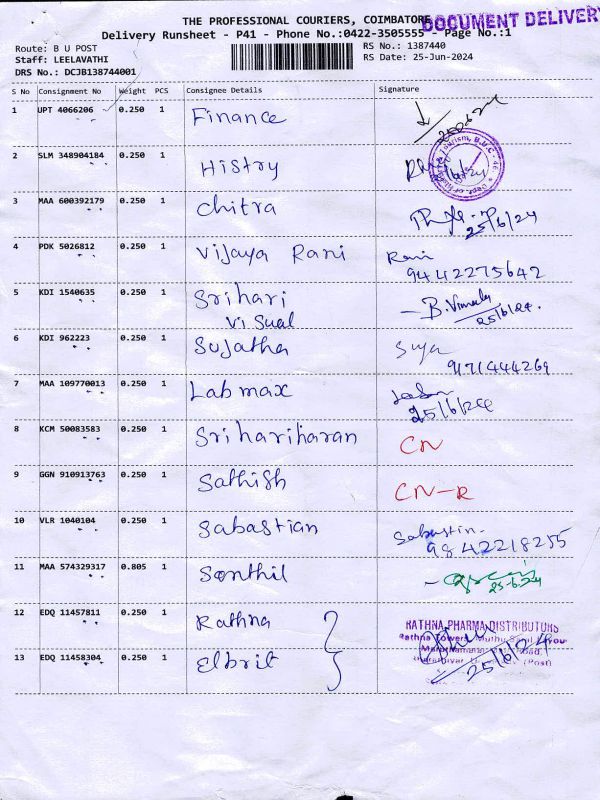 THE PROFESSIONAL COURIERS, COIMBATORE
DOCUMENT DELIVERY
Delivery Runsheet - P41 - Phone No.:0422-3505555 - Page No.:1
Route: B U POST
RS No.: 1387440
Staff: LEELAVATHI
RS Date: 25-Jun-2024
DRS No.: DCJB138744001
S No Consignment No Weight PCS Consignee Details Signature
1 UPT 4066206 0.250 1 Finance
2 SLM 348904184 0.250 1 Histry
3 MAA 600392179 0.250 1 Chitra
25/6/24
4 PDK 5026812 0.250 1 Vijaya Rani Rani
9442275642
5 KDI 1540635 0.250 1 Srihari B.Vimala
Visual 25/6/24.
6 KDI 962223 0.250 1 Sujatha Suja
9171444269
7 MAA 109770013 0.250 1 Labmax
25/6/24
8 KCM 50083583 0.250 1 Srihariharan CN
9 GGN 910913763 0.250 1 Sathish CN-R
10 VLR 1040104 0.250 1 Sabastian Sabastin.
9842218255
11 MAA 574329317 0.805 1 Sonthil
25-6-24
12 EDQ 11457811 0.250 1 Rathna RATHNA PHARMA DISTRIBUTORS
Rathna Towers,
13 EDQ 11458304 0.250 1 Elbrit 25/6/24
(Post)